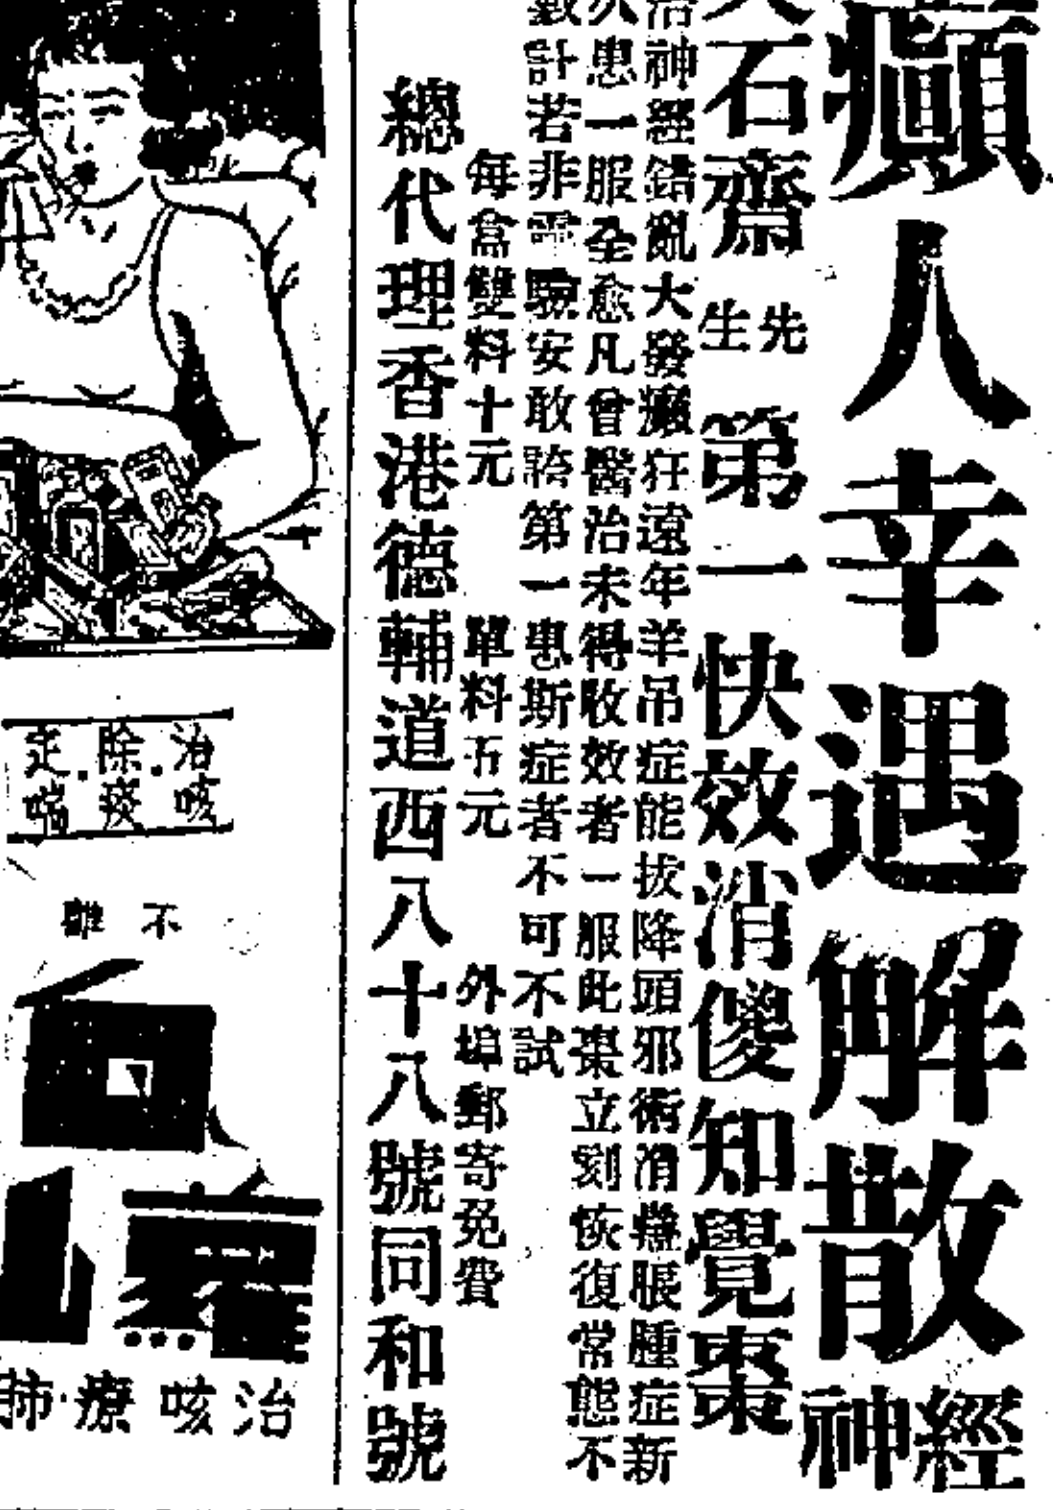 癲人幸遇解散神經
石齋先生 第一快效消傻知覺棗
治神經錯亂大發癲狂遠年羊吊症能拔降頭邪術消蠱脹腫症新
久患一服全愈凡曾醫治未得收效者一服此棗立刻恢復常態不
數計若非靈驗安敢誇第一患斯症者不可不試
每盒雙料十元 單料五元 外埠郵寄免費
總代理香港德輔道西八十八號同和號
治咳
除痰
定喘
不難
治咳療肺